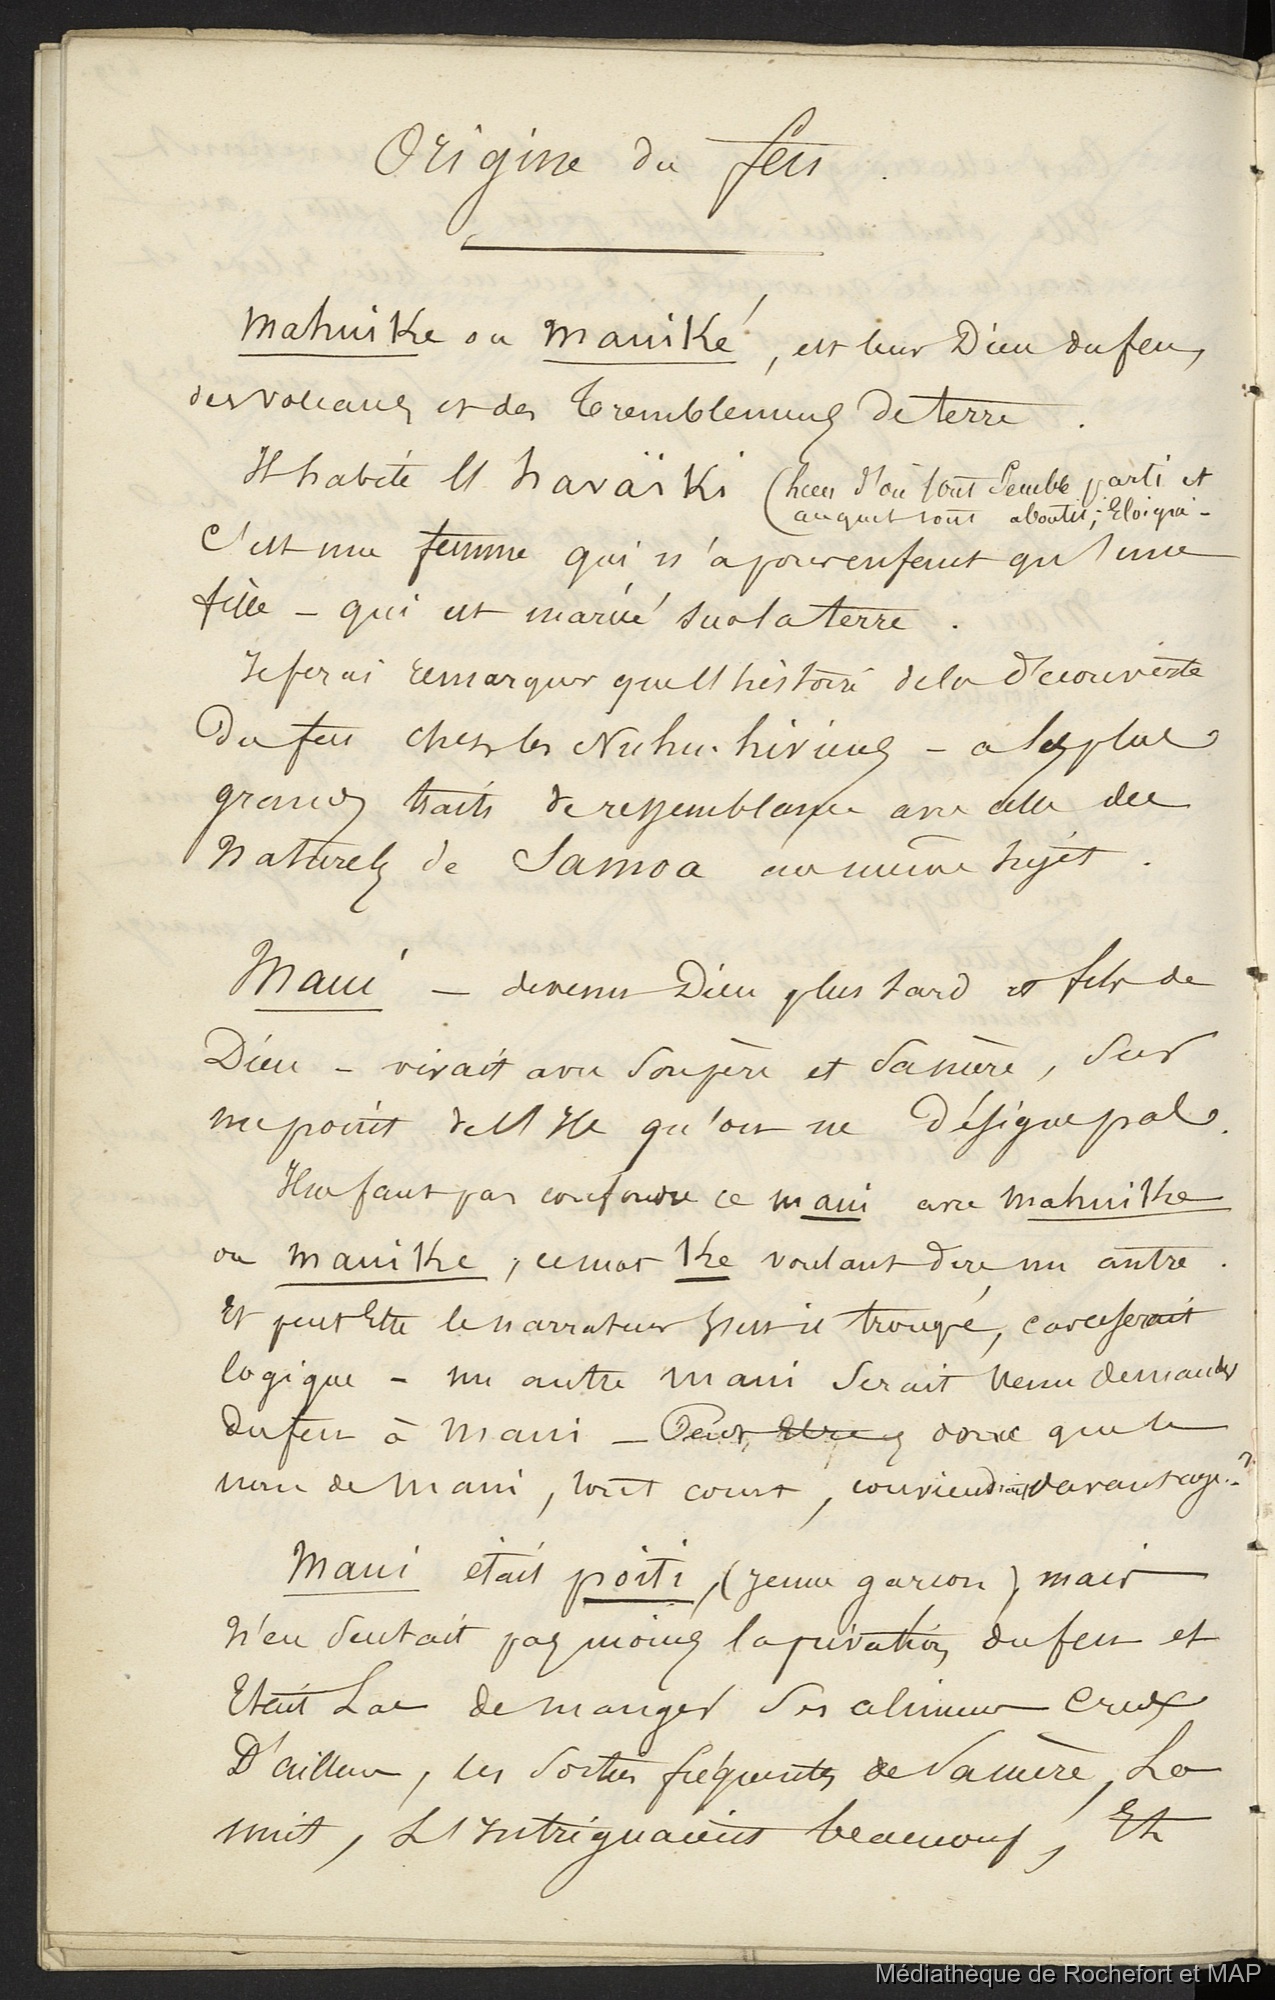 Origine du feu.
Mahuike ou Mauiké, est leur Dieu du feu,
des volcans et des tremblements de terre.
Il habite l'havaïki (lieu d'où tout semble parti et
auquel tout aboutit; Eloigné-
C'est une femme qui n'a pour enfant qu'une
fille - qui est mariée sur la terre.
Je ferai remarquer que l'histoire de la découverte
du feu chez les Nuhu-hiviens - a les plus
grands traits de ressemblance avec celle des
Naturels de Samoa au même sujet.
Maui - devenu Dieu plus tard et fils de
Dieu - vivait avec son père et sa mère, sur
un point de l'Ile qu'on ne désigne pas.
Il ne faut pas confondre ce maui avec mahuike
ou mauike, ce mot ke voulant dire un autre.
Et peut Etre le narrateur s'est il trompé, car ce serait
logique - un autre maui serait venu demander
du feu à maui - Peut Etre donc que le
nom de maui, tout court, conviendrait davantage.?
Maui était poiti, (jeune garçon), mais
n'en sentait pas moins la privation du feu et
Etait Las de manger ses aliments crus
D'ailleurs, les sorties fréquentes de sa mère, La
nuit, L'Intriguaient beaucoup, Et
Médiathèque de Rochefort et MAP